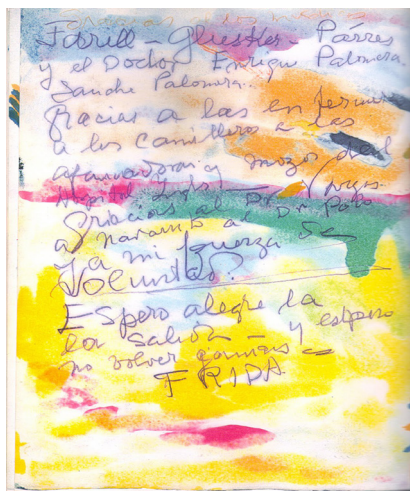 Gracias a los doctores
Farill – Glusker – Párres
y el Doctor Enrique Palomera
Sanche Palomera.
Gracias a las enfermeras
a los camilleros a las
afanadoras y mozos del
Hospital Inglés –
Gracias al Dr Vargas
a Navarro al Dr Polo
y a mi fuerza de
Voluntad.
Espero alegre la
la salida – y espero
no volver jamás –
FRIDA